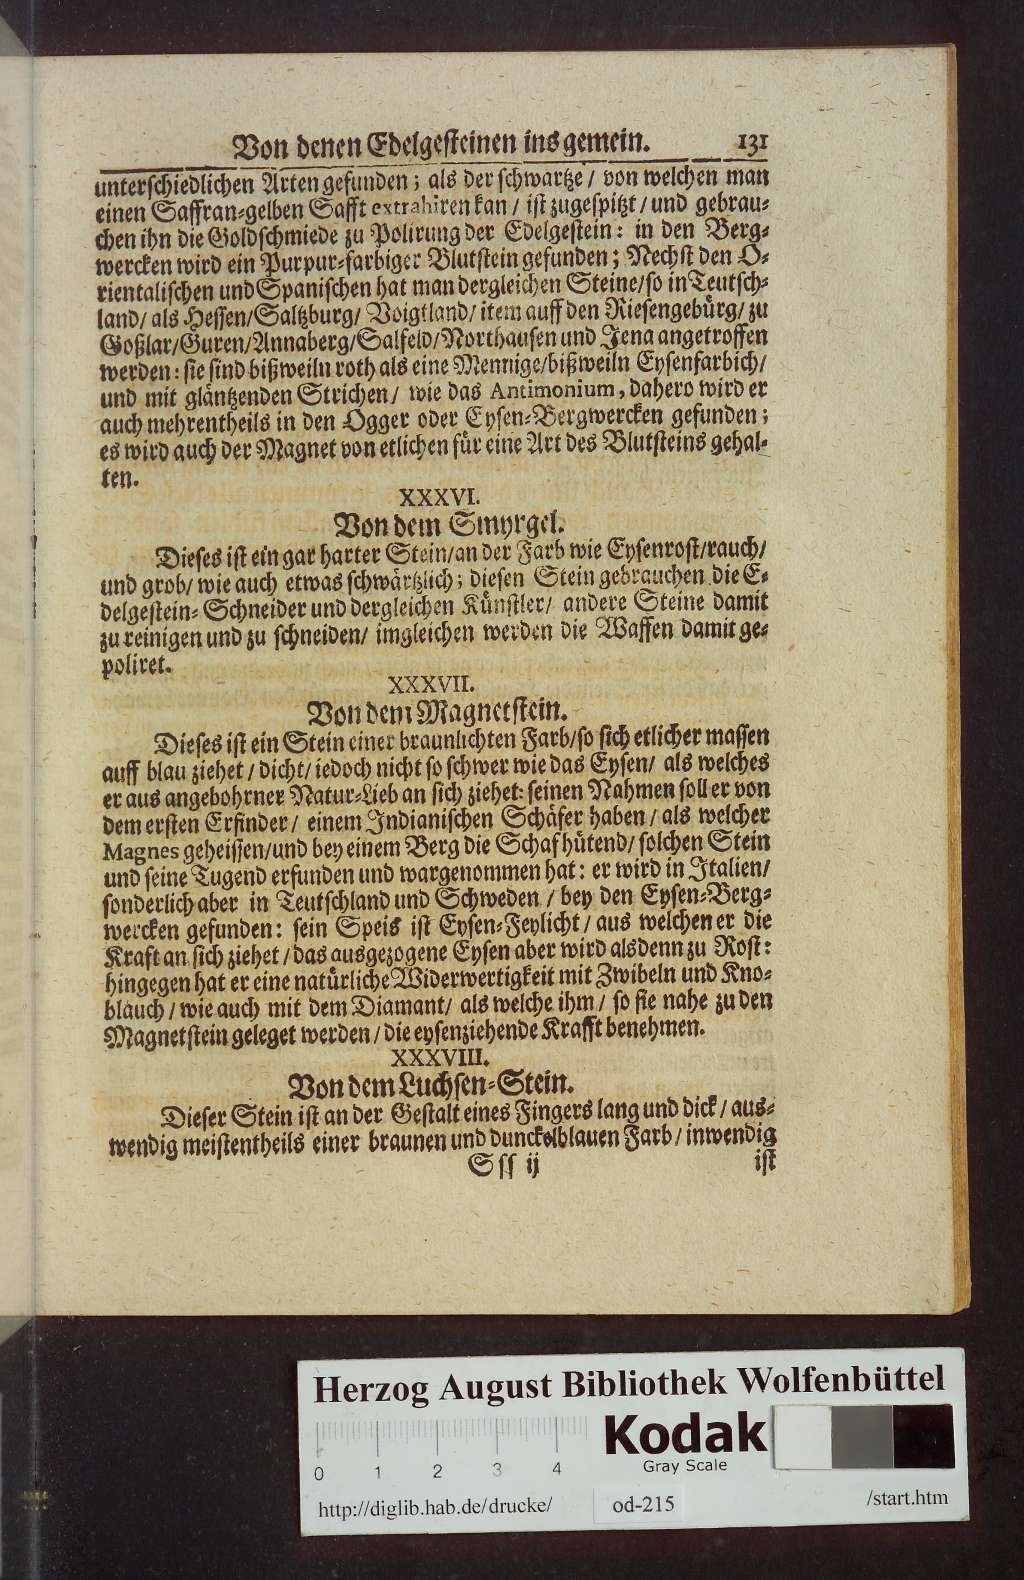 Von denen Edelgesteinen ins gemein. 131
unterschiedlichen Arten gefunden; als der schwartze / von welchen man
einen Saffran-gelben Safft extrahiren kan / ist zugespitzt / und gebrau-
chen ihn die Goldschmiede zu Polirung der Edelgestein: in den Berg-
wercken wird ein Purpur-farbiger Blutstein gefunden; Nechst den O-
rientalischen und Spanischen hat man dergleichen Steine/so in Teutsch-
land/ als Hessen/Saltzburg/ Voigtland/ item auff den Riesengebürg/ zu
Goßlar/Guren/Annaberg/Salfeld/Northausen und Jena angetroffen
werden: sie sind bißweiln roth als eine Mennige/bißweiln Eysenfarbich/
und mit gläntzenden Strichen/ wie das Antimonium, dahero wird er
auch mehrentheils in den Ogger oder Eysen-Bergwercken gefunden;
es wird auch der Magnet von etlichen für eine Art des Blutsteins gehal-
ten.
XXXVI.
Von dem Smyrgel.
Dieses ist ein gar harter Stein/an der Farb wie Eysenrost/rauch/
und grob/ wie auch etwas schwärtzlich; diesen Stein gebrauchen die E-
delgestein-Schneider und dergleichen Künstler/ andere Steine damit
zu reinigen und zu schneiden/ imgleichen werden die Waffen damit ge-
poliret.
XXXVII.
Von dem Magnetstein.
Dieses ist ein Stein einer braunlichten Farb/so sich etlicher massen
auff blau ziehet / dicht/ iedoch nicht so schwer wie das Eysen/ als welches
er aus angebohrner Natur-Lieb an sich ziehet: seinen Nahmen soll er von
dem ersten Erfinder/ einem Indianischen Schäfer haben/ als welcher
Magnes geheissen/und bey einem Berg die Schaf hütend/ solchen Stein
und seine Tugend erfunden und wargenommen hat: er wird in Italien/
sonderlich aber in Teutschland und Schweden / bey den Eysen-Berg-
wercken gefunden: sein Speis ist Eysen-Feylicht / aus welchen er die
Kraft an sich ziehet / das ausgezogene Eysen aber wird alsdenn zu Rost:
hingegen hat er eine natürliche Widerwertigkeit mit Zwibeln und Kno-
blauch / wie auch mit dem Diamant/ als welche ihm / so sie nahe zu den
Magnetstein geleget werden / die eysenziehende Krafft benehmen.
XXXVIII.
Von dem Luchsen-Stein.
Dieser Stein ist an der Gestalt eines Fingers lang und dick / aus-
wendig meistentheils einer braunen und dunckelblauen Farb / inwendig
Sss ij ist
Herzog August Bibliothek Wolfenbüttel
Kodak
Gray Scale
0 1 2 3 4
http://diglib.hab.de/drucke/ od-215 /start.htm